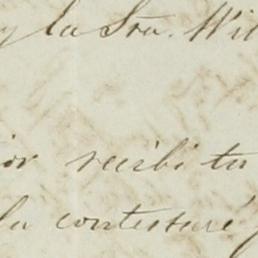 y la Sra. Wil
ior recibi tu
la contesaré